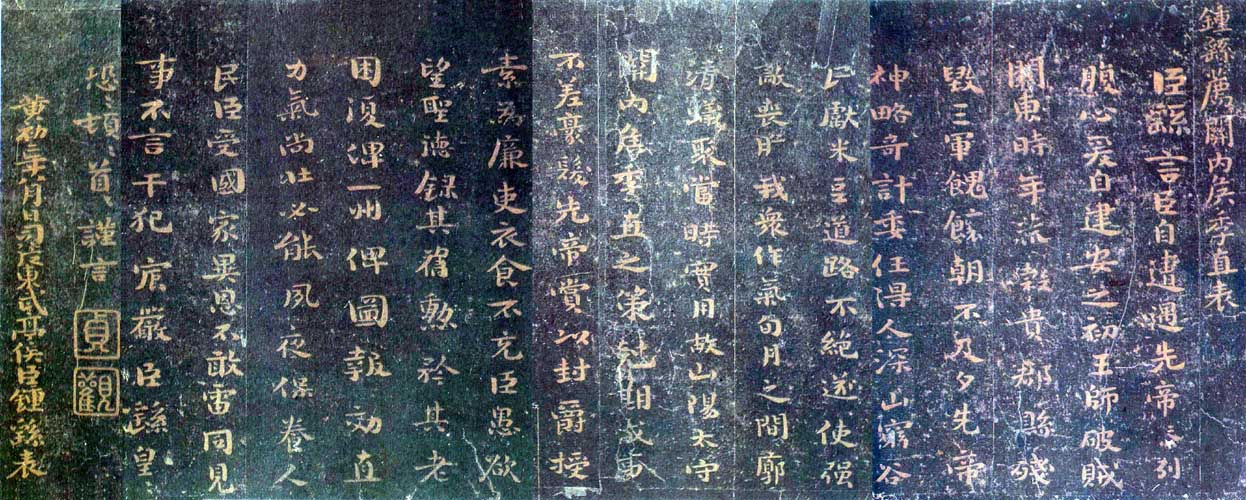 鍾繇薦關內侯季直表
臣繇言臣自遭遇先帝忝列
腹心爰自建安之初王師破賊
關東時年荒穀貴郡縣殘
毀三軍餽饟朝不及夕先帝
神略奇計委任得人深山窮谷
民獻米豆道路不絕遂使强
敵喪膽我衆作氣旬月之間廓
清蟻聚當時實用故山陽太守
關內侯季直之策尅期成事
不差豪髮先帝賞以封爵授
素為廉吏衣食不充臣愚欲
望聖德錄其舊勳矜其老
困復俾一州俾圖報効直
力氣尚壯必能夙夜保養人
民臣受國家異恩不敢雷同見
事不言干犯宸嚴臣繇皇
恐〻頓〻首〻謹言
貞觀
黃初二年八月日司徒東武亭侯臣鍾繇表